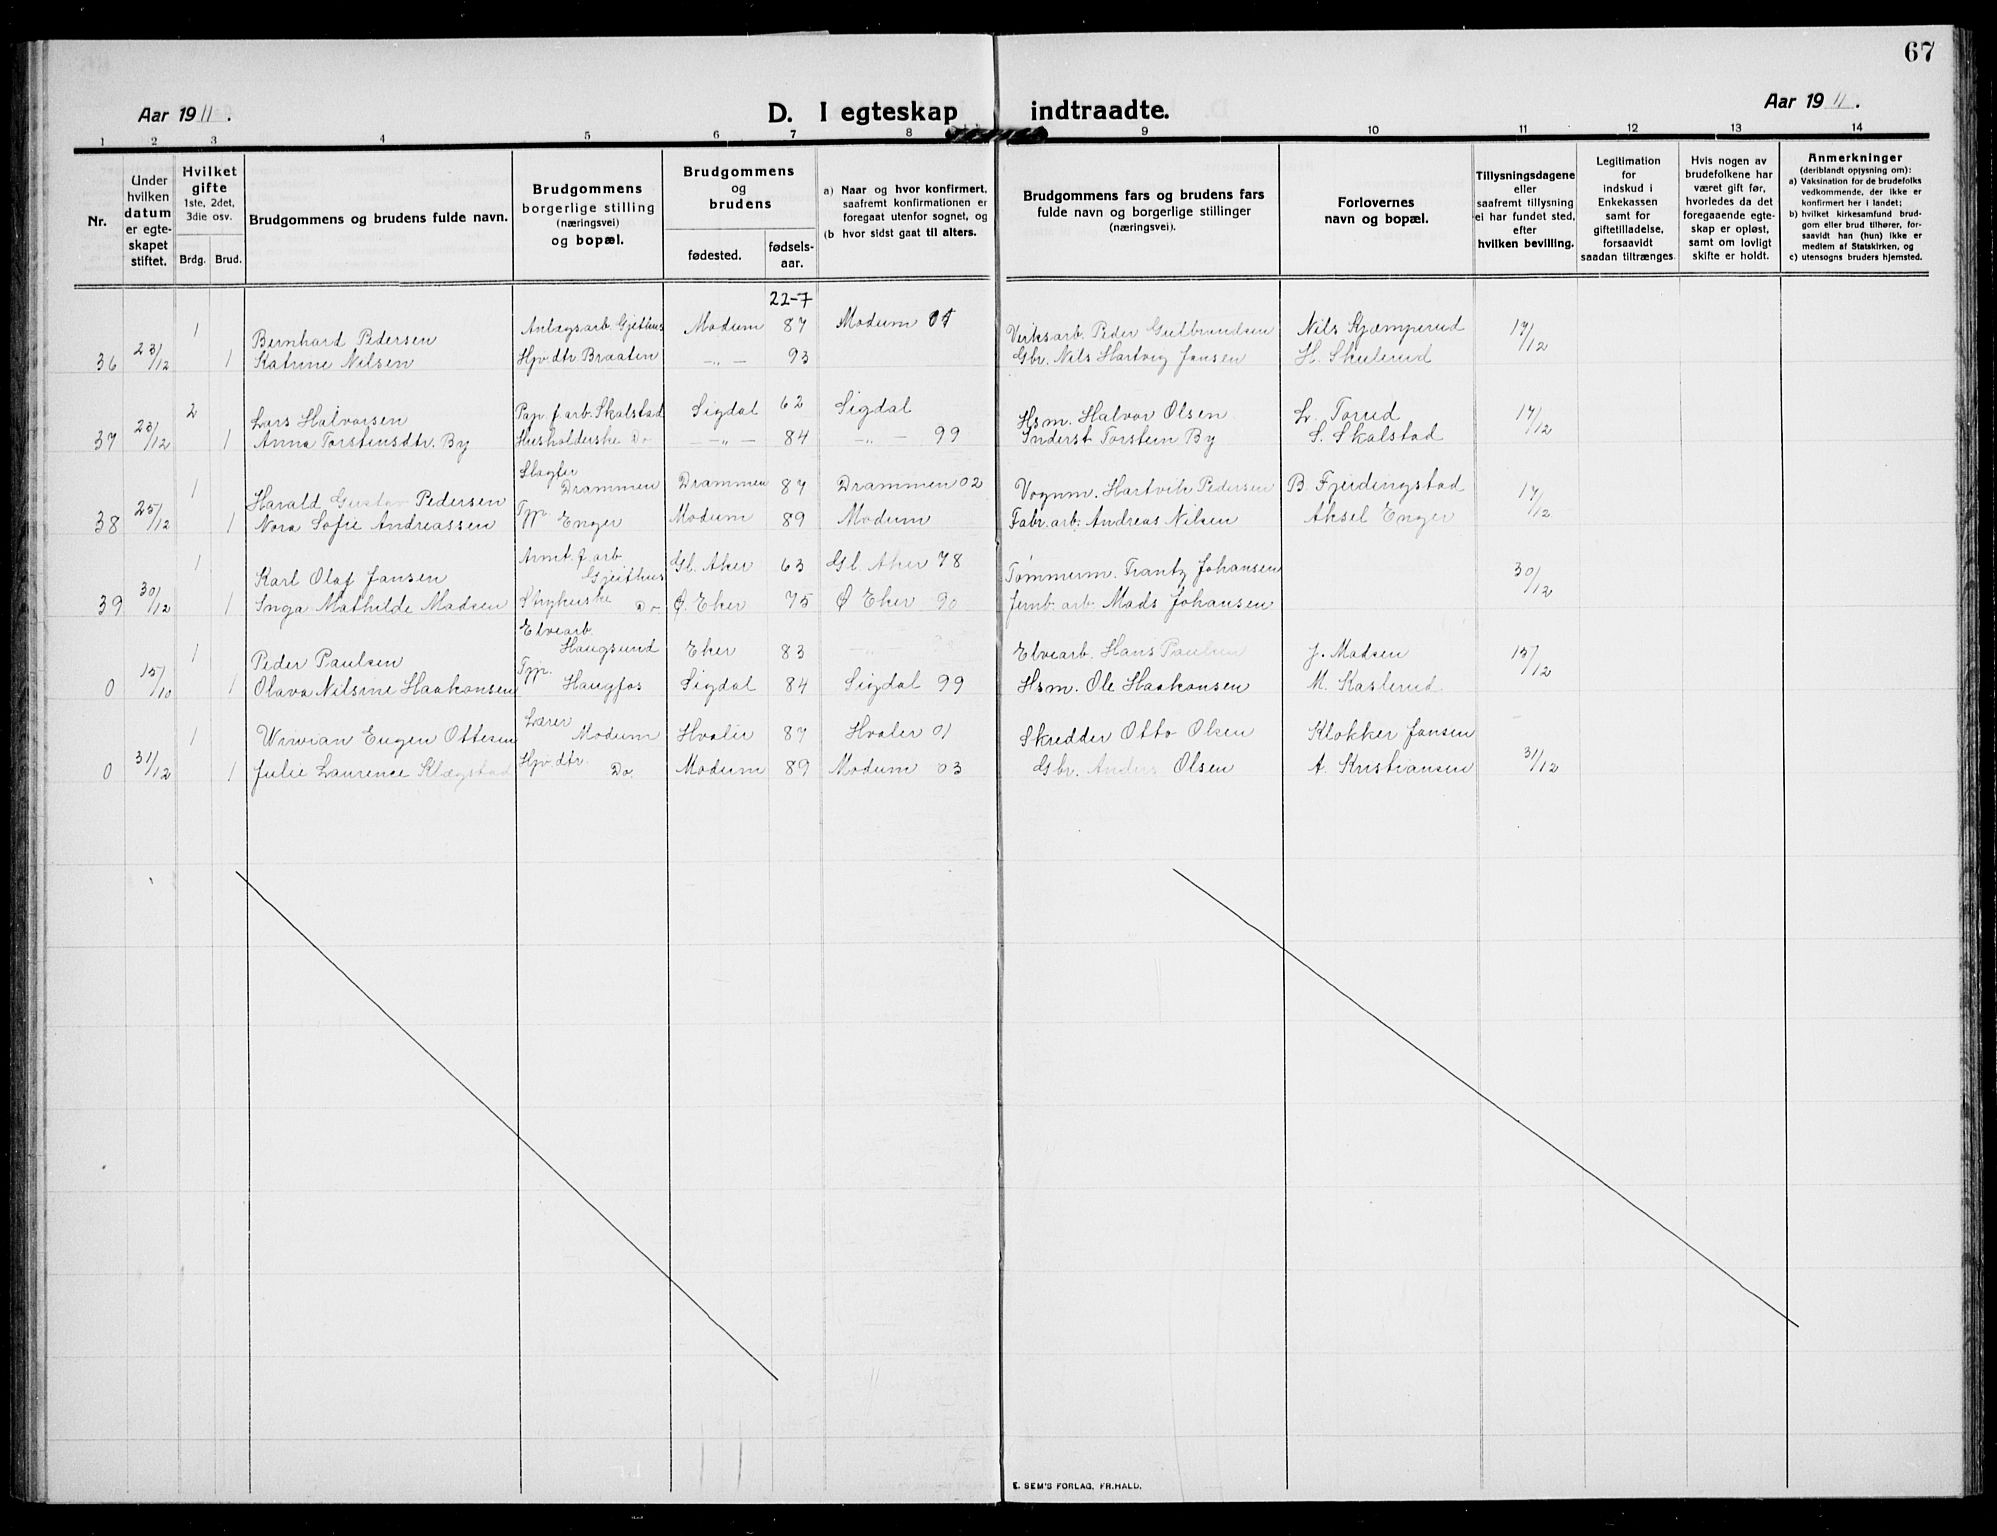 67
Aar 19 11.
D. I egteskap indtraadte.
Aar 19 11.
1 2 3 4 5 6 7 8 9 10 11 12 13 14
Nr.
Under hvilken datum er egteskapet stiftet.
Hvilket gifte 1ste, 2det, 3die osv.
Brdg. Brud.
Brudgommens og brudens fulde navn.
Brudgommens borgerlige stilling (næringsvei) og bopæl.
Brudgommens og brudens
fødested.
fødsels-aar.
a) Naar og hvor konfirmert, saafremt konfirmationen er foregaat utenfor sognet, og
(b hvor sidst gaat til alters.
Brudgommens fars og brudens fars fulde navn og borgerlige stillinger (næringsvei).
Forlovernes navn og bopæl.
Tillysningsdagene eller saafremt tillysning ei har fundet sted, efter hvilken bevilling.
Legitimation for indskud i Enkekassen samt for giftetilladelse, forsaavidt saadan tiltrænges.
Hvis nogen av brudefolkene har været gift før, hvorledes da det foregaaende egteskap er opløst, samt om lovligt skifte er holdt.
Anmerkninger (deriblandt opjysning om):
a) Vaksination for de brudefolks vedkommende, der ikke er konfirmert her i landet;
b) hvilket kirkesamfund brudgom eller brud tilhører, forsaavidt han (hun) ikke er medlem af Statskirken, og
c) utensogns bruders hjemsted.
22-7
1 Bernhard Pedersen Anlægsarb. Gjethus Modum 87 Modum 01 Verksarb. Peder Gulbrandsen Nils Kjæmperud 17/12
36 23/12 1 Katrine Nilsen Hjv. dtr Braaten -„- 93 Gbr. Nils Hartvig Jansen H. Skulerud
2 Lars Halvorsen Pap. f. arb. Skalstad Sigdal 62 Sigdal Hsm. Halvor Olsen L. Torud 17/12
37 23/12 1 Anna Torstensdtr. By Husholderske Do -„- 84 -„- 99 Inderst Torstein By S. Skalstad
1 Harald Gustav Pedersen Slagter Drammen Drammen 87 Drammen 02 Vognm. Hartvik Pedersen B. Fjerdingstad 17/12
38 25/12 1 Nora Sofie Andreassen Tjp. Enger Modum 89 Modum Fabr. arb. Andreas Nilsen Aksel Enger
1 Karl Olaf Jansen Armt. f. arb Gjeithus Gl. Aker 63 Gl. Aker 78 Tømmerm. Frantz Johansen 30/12
39 30/12 1 Inga Mathilde Madsen Strykerske Do Ø. Eker 75 Ø Eker 90 Jernb. arb. Mads Johansen
1 Peder Paulsen Elvearb. Haugsund Eker 83 -„- Elvearb. Hans Paulsen J. Madsen 15/12
0 15/10 1 Olava Nilsine Haakonsen Tjp. Haugfos Sigdal 84 Sigdal 99 Hsm. Ole Haakonsen M. Kaslerud
1 Wivian Eugen Ottesen Lærer Modum Hvaler 87 Hvaler 01 Skredder Otto Olsen Klokker Jansen
0 31/12 1 Julie Laurence Klægstad Hjv. dtr. Do. Modum 89 Modum 03 Gbr. Anders Olsen A. Kristiansen 31/12
E. SEM'S FORLAG, FR.HALD.